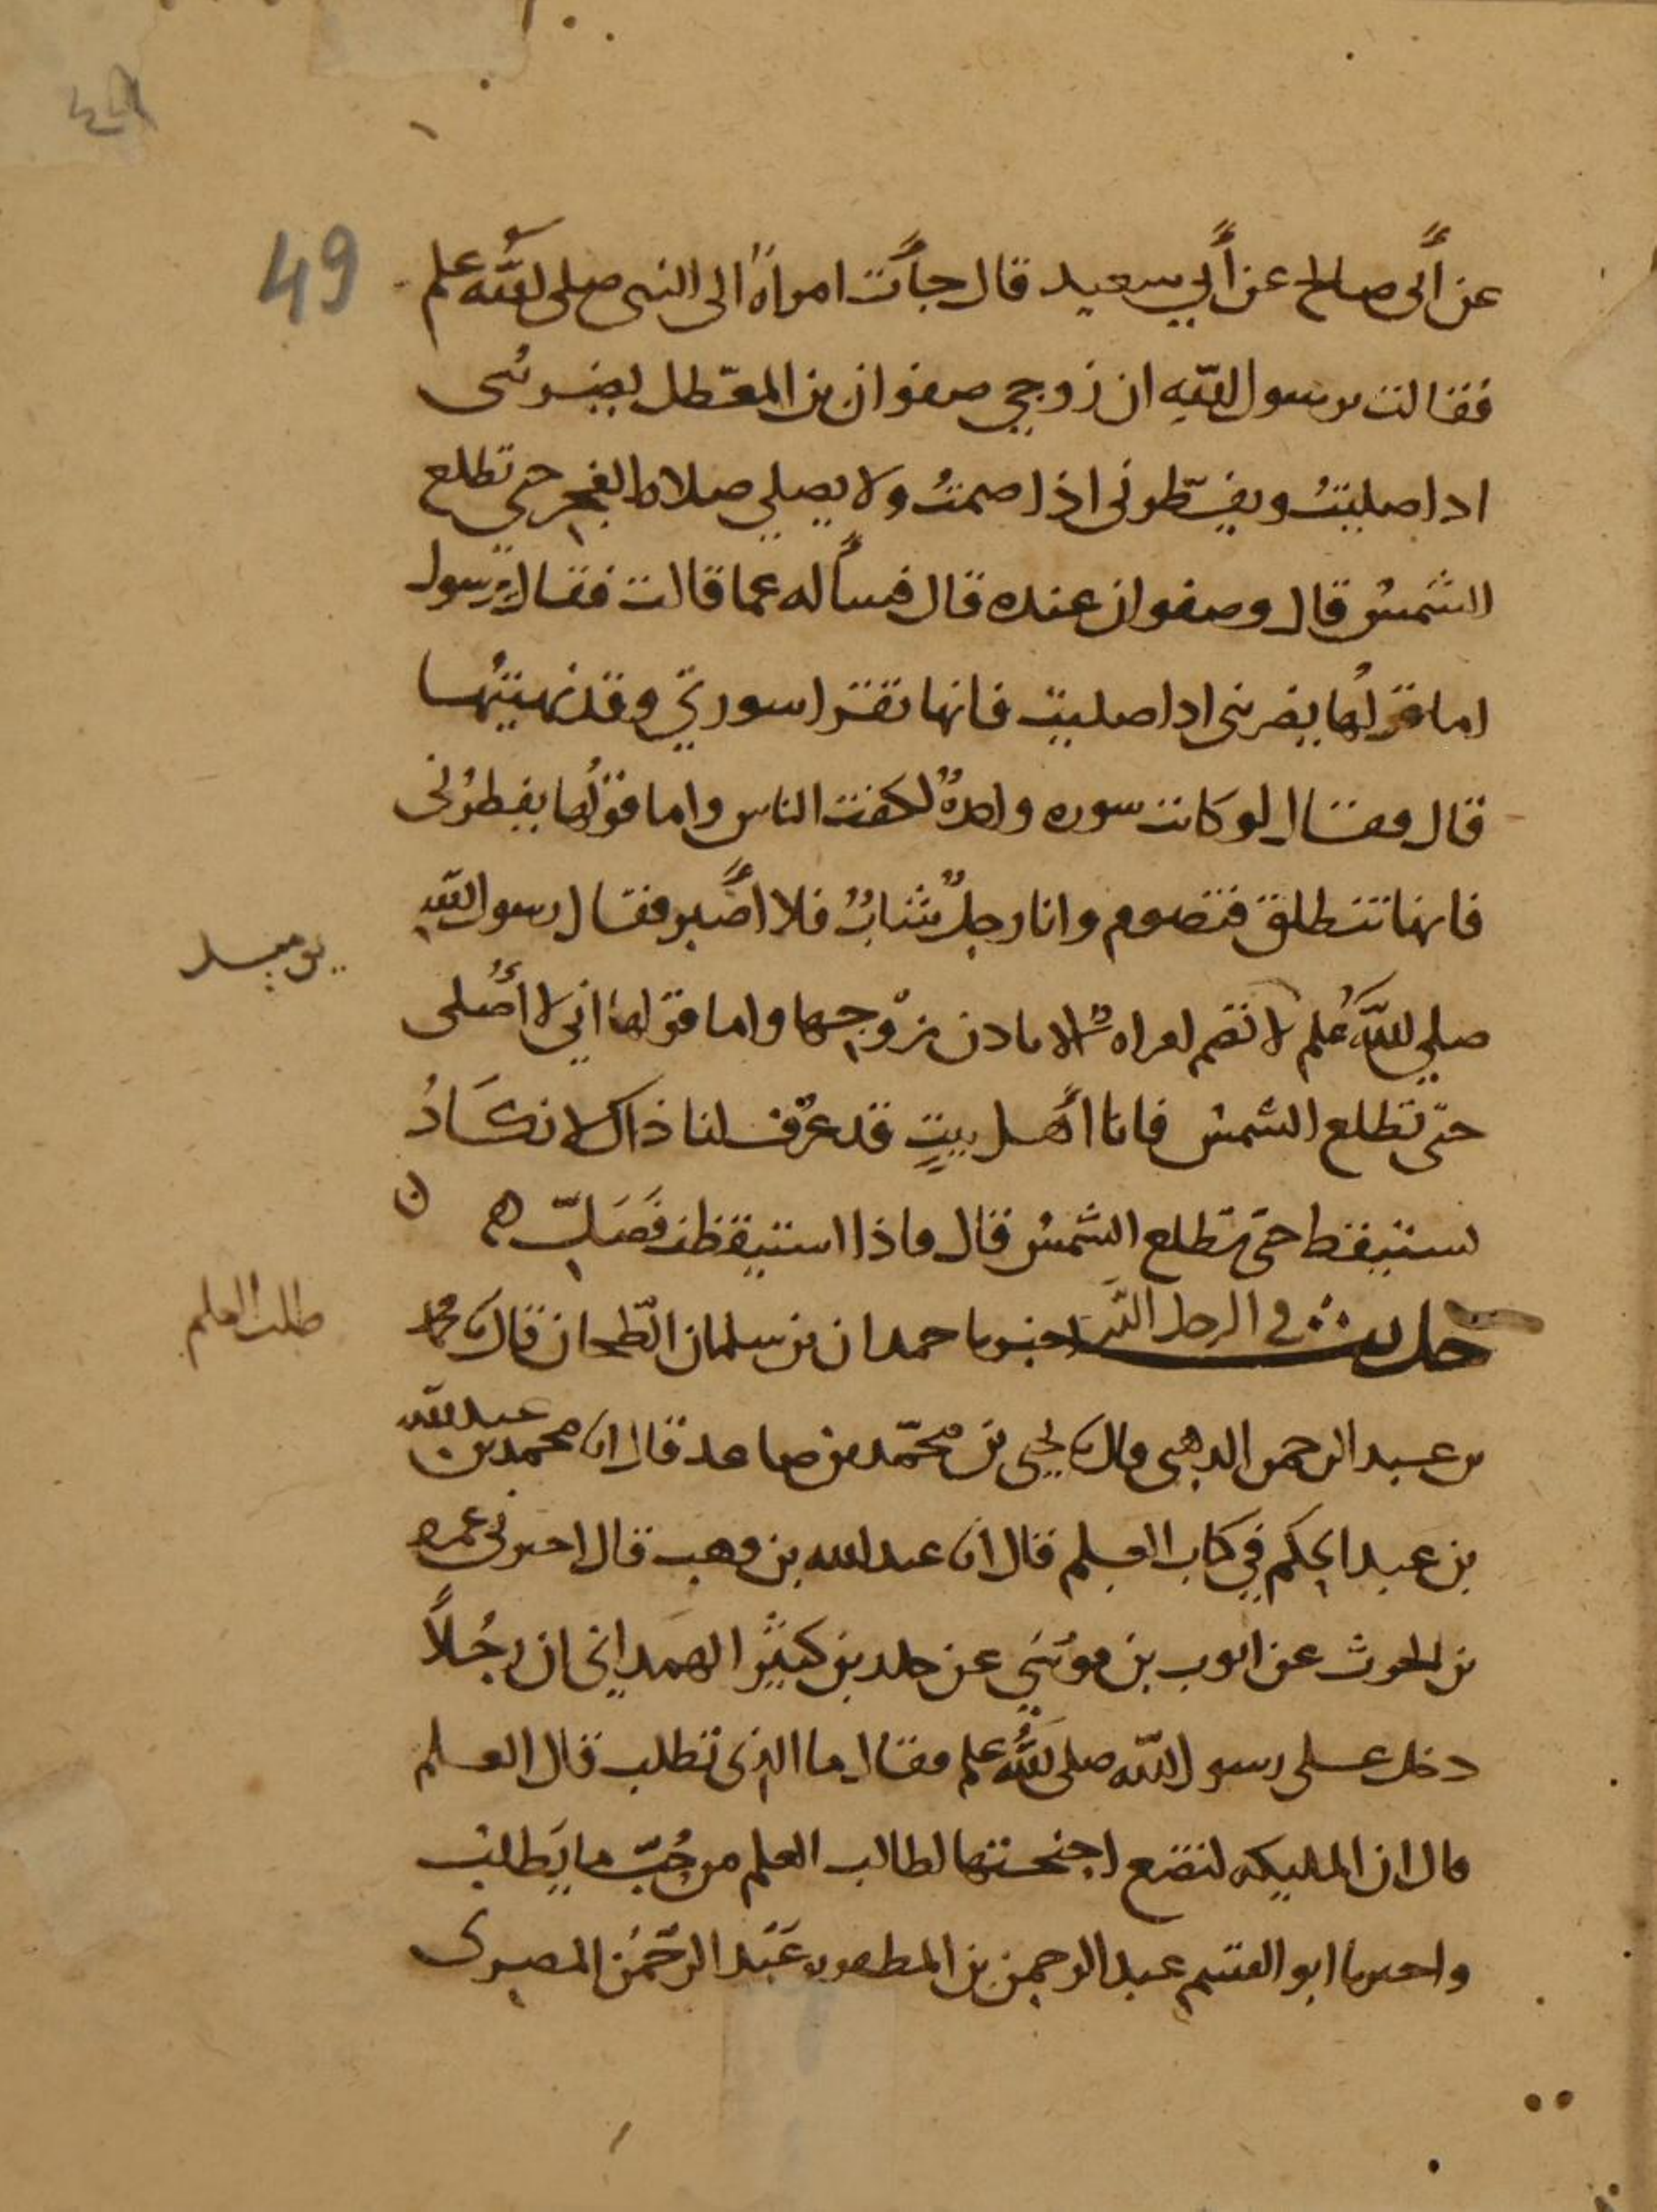 49
عن أبي صالح عن أبي سعيد قال جأت امراة الى النبي صلى الله علم
فقالت يرسول الله ان زوجي صفوان بن المعطل يضربني
اذا صليت ويفطرني اذا صمت ولا يصلي صلاة الفجر حتى تطلع
الشمس قال وصفوان عنده قال فسأله عما قالت فقال يرسول
اما قولها يضربني اذا صليت فانها تقرا سورتي وقد نهيتها
قال فقال لو كانت سوره واحدة لكفت الناس واما قولها يفطرني
فانها تنطلق فتصوم وانا رجل شاب فلا أصبر فقال رسول الله
يوميذ
صلى الله علم لا تصم امراه الا باذن زوجها واما قولها اني لا أصلي
حتى تطلع الشمس فانا أهل بيت قد عرف لنا ذاك لا نكاد
نستيقظ حتى تطلع الشمس قال فاذا استيقظت فصل
حديث في الرحل اخبرنا حمدان بن سلمان الطحان قال نا محمد
طلب العلم
بن عبد الرحمن الذهبي قال نا يحيى بن محمد بن صاعد قال انا محمد بن عبد الله
بن عبد الحكم في كتاب العلم قال انا عبد الله بن وهب قال اخبرني عمرو
بن الحرث عن ايوب بن موسى عن خلد بن كثير الهمداني ان رجلاً
دخل على رسول الله صلى الله علم فقال ما الذي تطلب قال العلم
قال ان المليكه لتضع اجنحتها لطالب العلم من حب ما يطلب
واخبرنا ابو القسم عبد الرحمن بن المظفر بن عبد الرحمن المصري